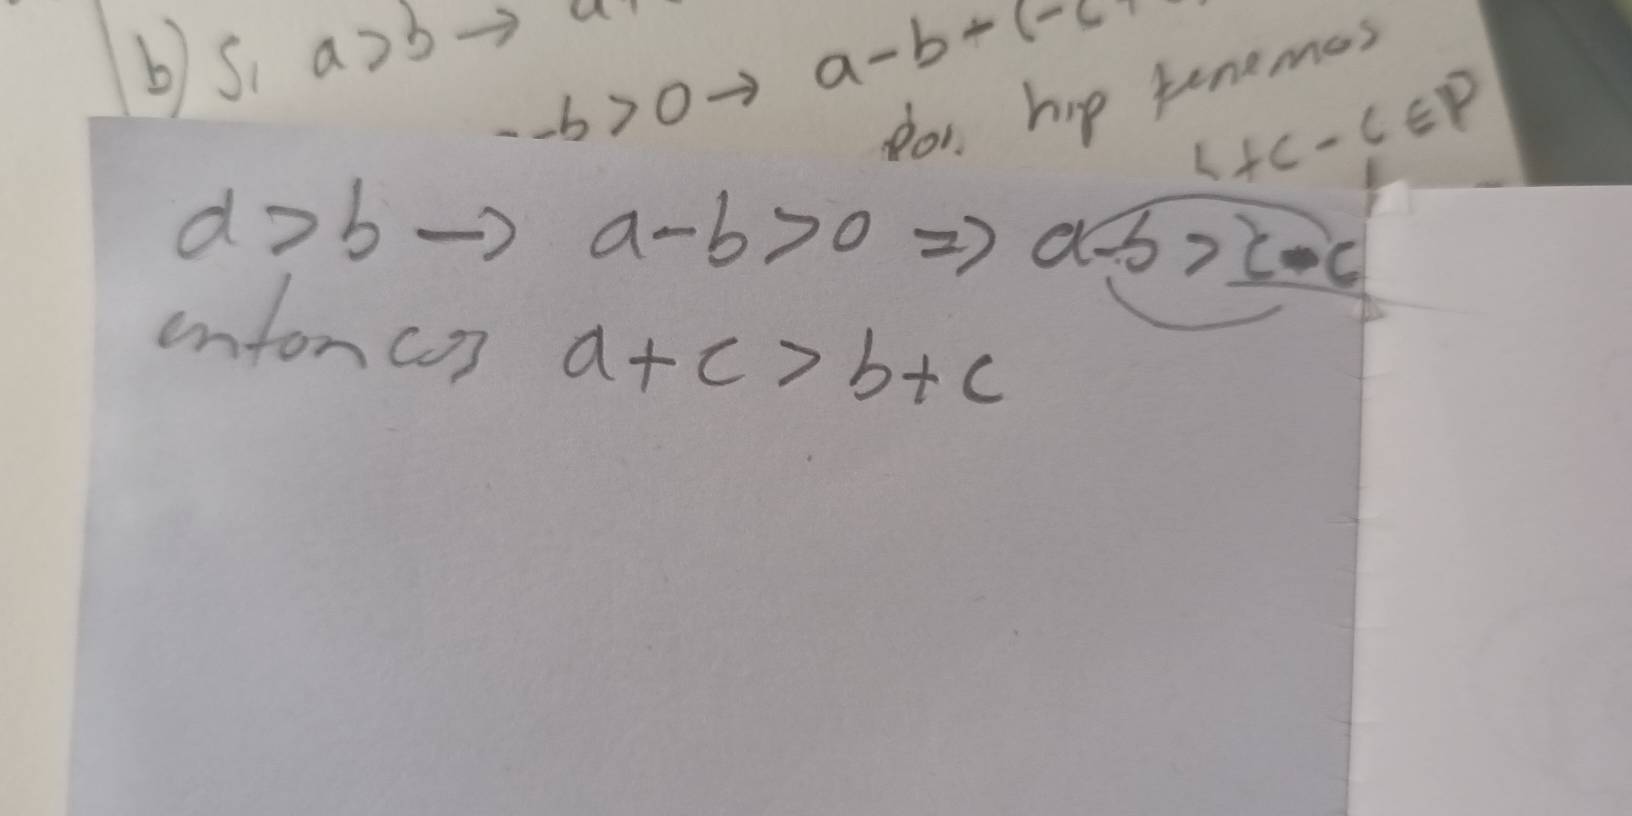 b) Si a>b →
-b>0 → a-b+(-c+
por hip tenemos
+c-c∈P
a>b → a-b>0 ⇒ a-b>c-c
entonces a+c>b+c